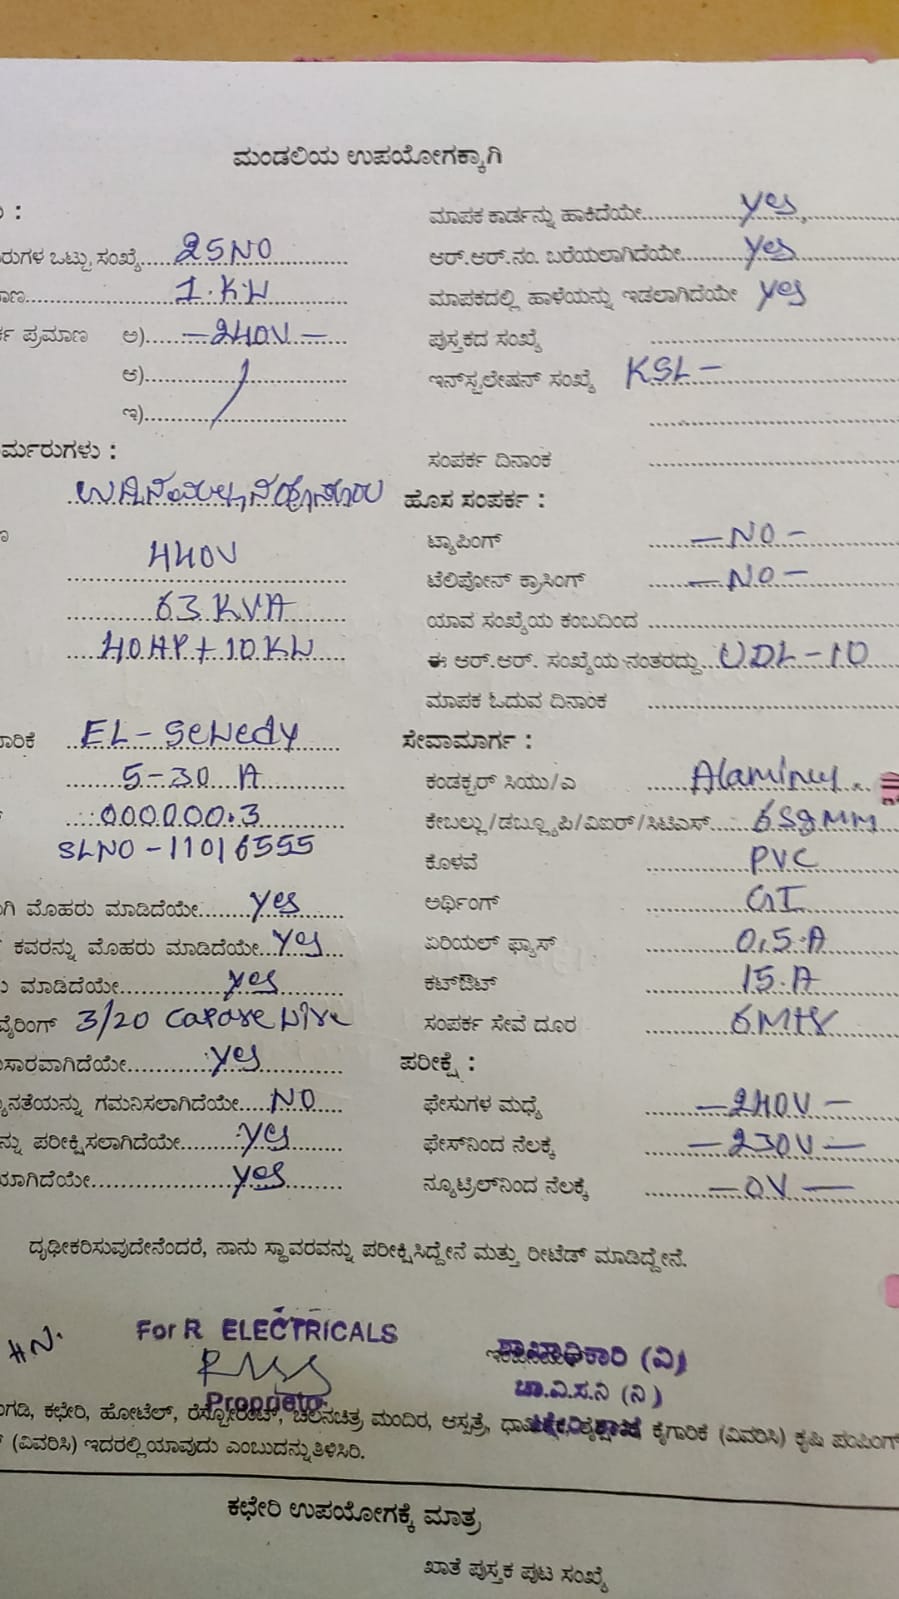 ಮಂಡಲಿಯ ಉಪಯೋಗಕ್ಕಾಗಿ
ರುಗಳ ಒಟ್ಟು ಸಂಖ್ಯೆ.....25NO
ಾಣ.....1.KW
ಕ ಪ್ರಮಾಣ ಅ).....—240V—
ಆ).....
ಇ).....
ರ್ಮರುಗಳು :
440V
63 KVA
40HP+10KW
ಾರಿಕೆ EL-SeWedy
5-30 A
000000.3
SLNO-11016555
ಗಿ ಮೊಹರು ಮಾಡಿದೆಯೇ.....Yes
ಕವರನ್ನು ಮೊಹರು ಮಾಡಿದೆಯೇ...Yes
ು ಮಾಡಿದೆಯೇ.....yes
ವೈರಿಂಗ್ 3/20 Capare Wire
ುಸಾರವಾಗಿದೆಯೇ.....yes
್ಯನತೆಯನ್ನು ಗಮನಿಸಲಾಗಿದೆಯೇ.....NO
ನ್ನು ಪರೀಕ್ಷಿಸಲಾಗಿದೆಯೇ.....yes
ಯಾಗಿದೆಯೇ.....yes
ಮಾಪಕ ಕಾರ್ಡನ್ನು ಹಾಕಿದೆಯೇ.....yes
ಆರ್.ಆರ್.ನಂ. ಬರೆಯಲಾಗಿದೆಯೇ.....yes
ಮಾಪಕದಲ್ಲಿ ಹಾಳೆಯನ್ನು ಇಡಲಾಗಿದೆಯೇ yes
ಪುಸ್ತಕದ ಸಂಖ್ಯೆ
ಇನ್‌ಸ್ಟಲೇಷನ್ ಸಂಖ್ಯೆ KSL-
ಸಂಪರ್ಕ ದಿನಾಂಕ
ಹೊಸ ಸಂಪರ್ಕ :
ಟ್ಯಾಪಿಂಗ್ —NO—
ಟೆಲಿಪೋನ್ ಕ್ರಾಸಿಂಗ್ —NO—
ಯಾವ ಸಂಖ್ಯೆಯ ಕಂಬದಿಂದ
ಈ ಆರ್.ಆರ್. ಸಂಖ್ಯೆಯ ನಂತರದ್ದು...UDL-10
ಮಾಪಕ ಓದುವ ದಿನಾಂಕ
ಸೇವಾಮಾರ್ಗ :
ಕಂಡಕ್ಟರ್ ಸಿಯು/ಎ Alaminuy
ಕೇಬಲ್ಲು/ಡಬ್ಲ್ಯೂಪಿ/ವಿಐರ್/ಸಿಟಿಎಸ್.....6SqMM
ಕೊಳವೆ PVC
ಅರ್ಥಿಂಗ್ GI
ಏರಿಯಲ್ ಫ್ಯೂಸ್ 0.5.A
ಕಟ್‌ಔಟ್ 15.A
ಸಂಪರ್ಕ ಸೇವೆ ದೂರ 6Mtr
ಪರೀಕ್ಷೆ :
ಫೇಸುಗಳ ಮಧ್ಯೆ —240V—
ಫೇಸ್‌ನಿಂದ ನೆಲಕ್ಕೆ —230V—
ನ್ಯೂಟ್ರಿಲ್‌ನಿಂದ ನೆಲಕ್ಕೆ —0V—
ದೃಢೀಕರಿಸುವುದೇನೆಂದರೆ, ನಾನು ಸ್ಥಾವರವನ್ನು ಪರೀಕ್ಷಿಸಿದ್ದೇನೆ ಮತ್ತು ರೀಟೆಡ್ ಮಾಡಿದ್ದೇನೆ.
For R ELECTRICALS
Proprietor
ಶಾಖಾಧಿಕಾರಿ (ವಿ)
ಚಾ.ವಿ.ಸ.ನಿ (ನಿ)
ಂಗಡಿ, ಕಛೇರಿ, ಹೋಟೆಲ್, ರೆಸ್ಟೋರೆಂಟ್, ಚಲನಚಿತ್ರ ಮಂದಿರ, ಆಸ್ಪತ್ರೆ, ಕೈಗಾರಿಕೆ (ವಿವರಿಸಿ) ಕೃಷಿ ಪಂಪಿಂಗ್
(ವಿವರಿಸಿ) ಇದರಲ್ಲಿ ಯಾವುದು ಎಂಬುದನ್ನು ತಿಳಿಸಿರಿ.
ಕಛೇರಿ ಉಪಯೋಗಕ್ಕೆ ಮಾತ್ರ
ಖಾತೆ ಪುಸ್ತಕ ಪುಟ ಸಂಖ್ಯೆ